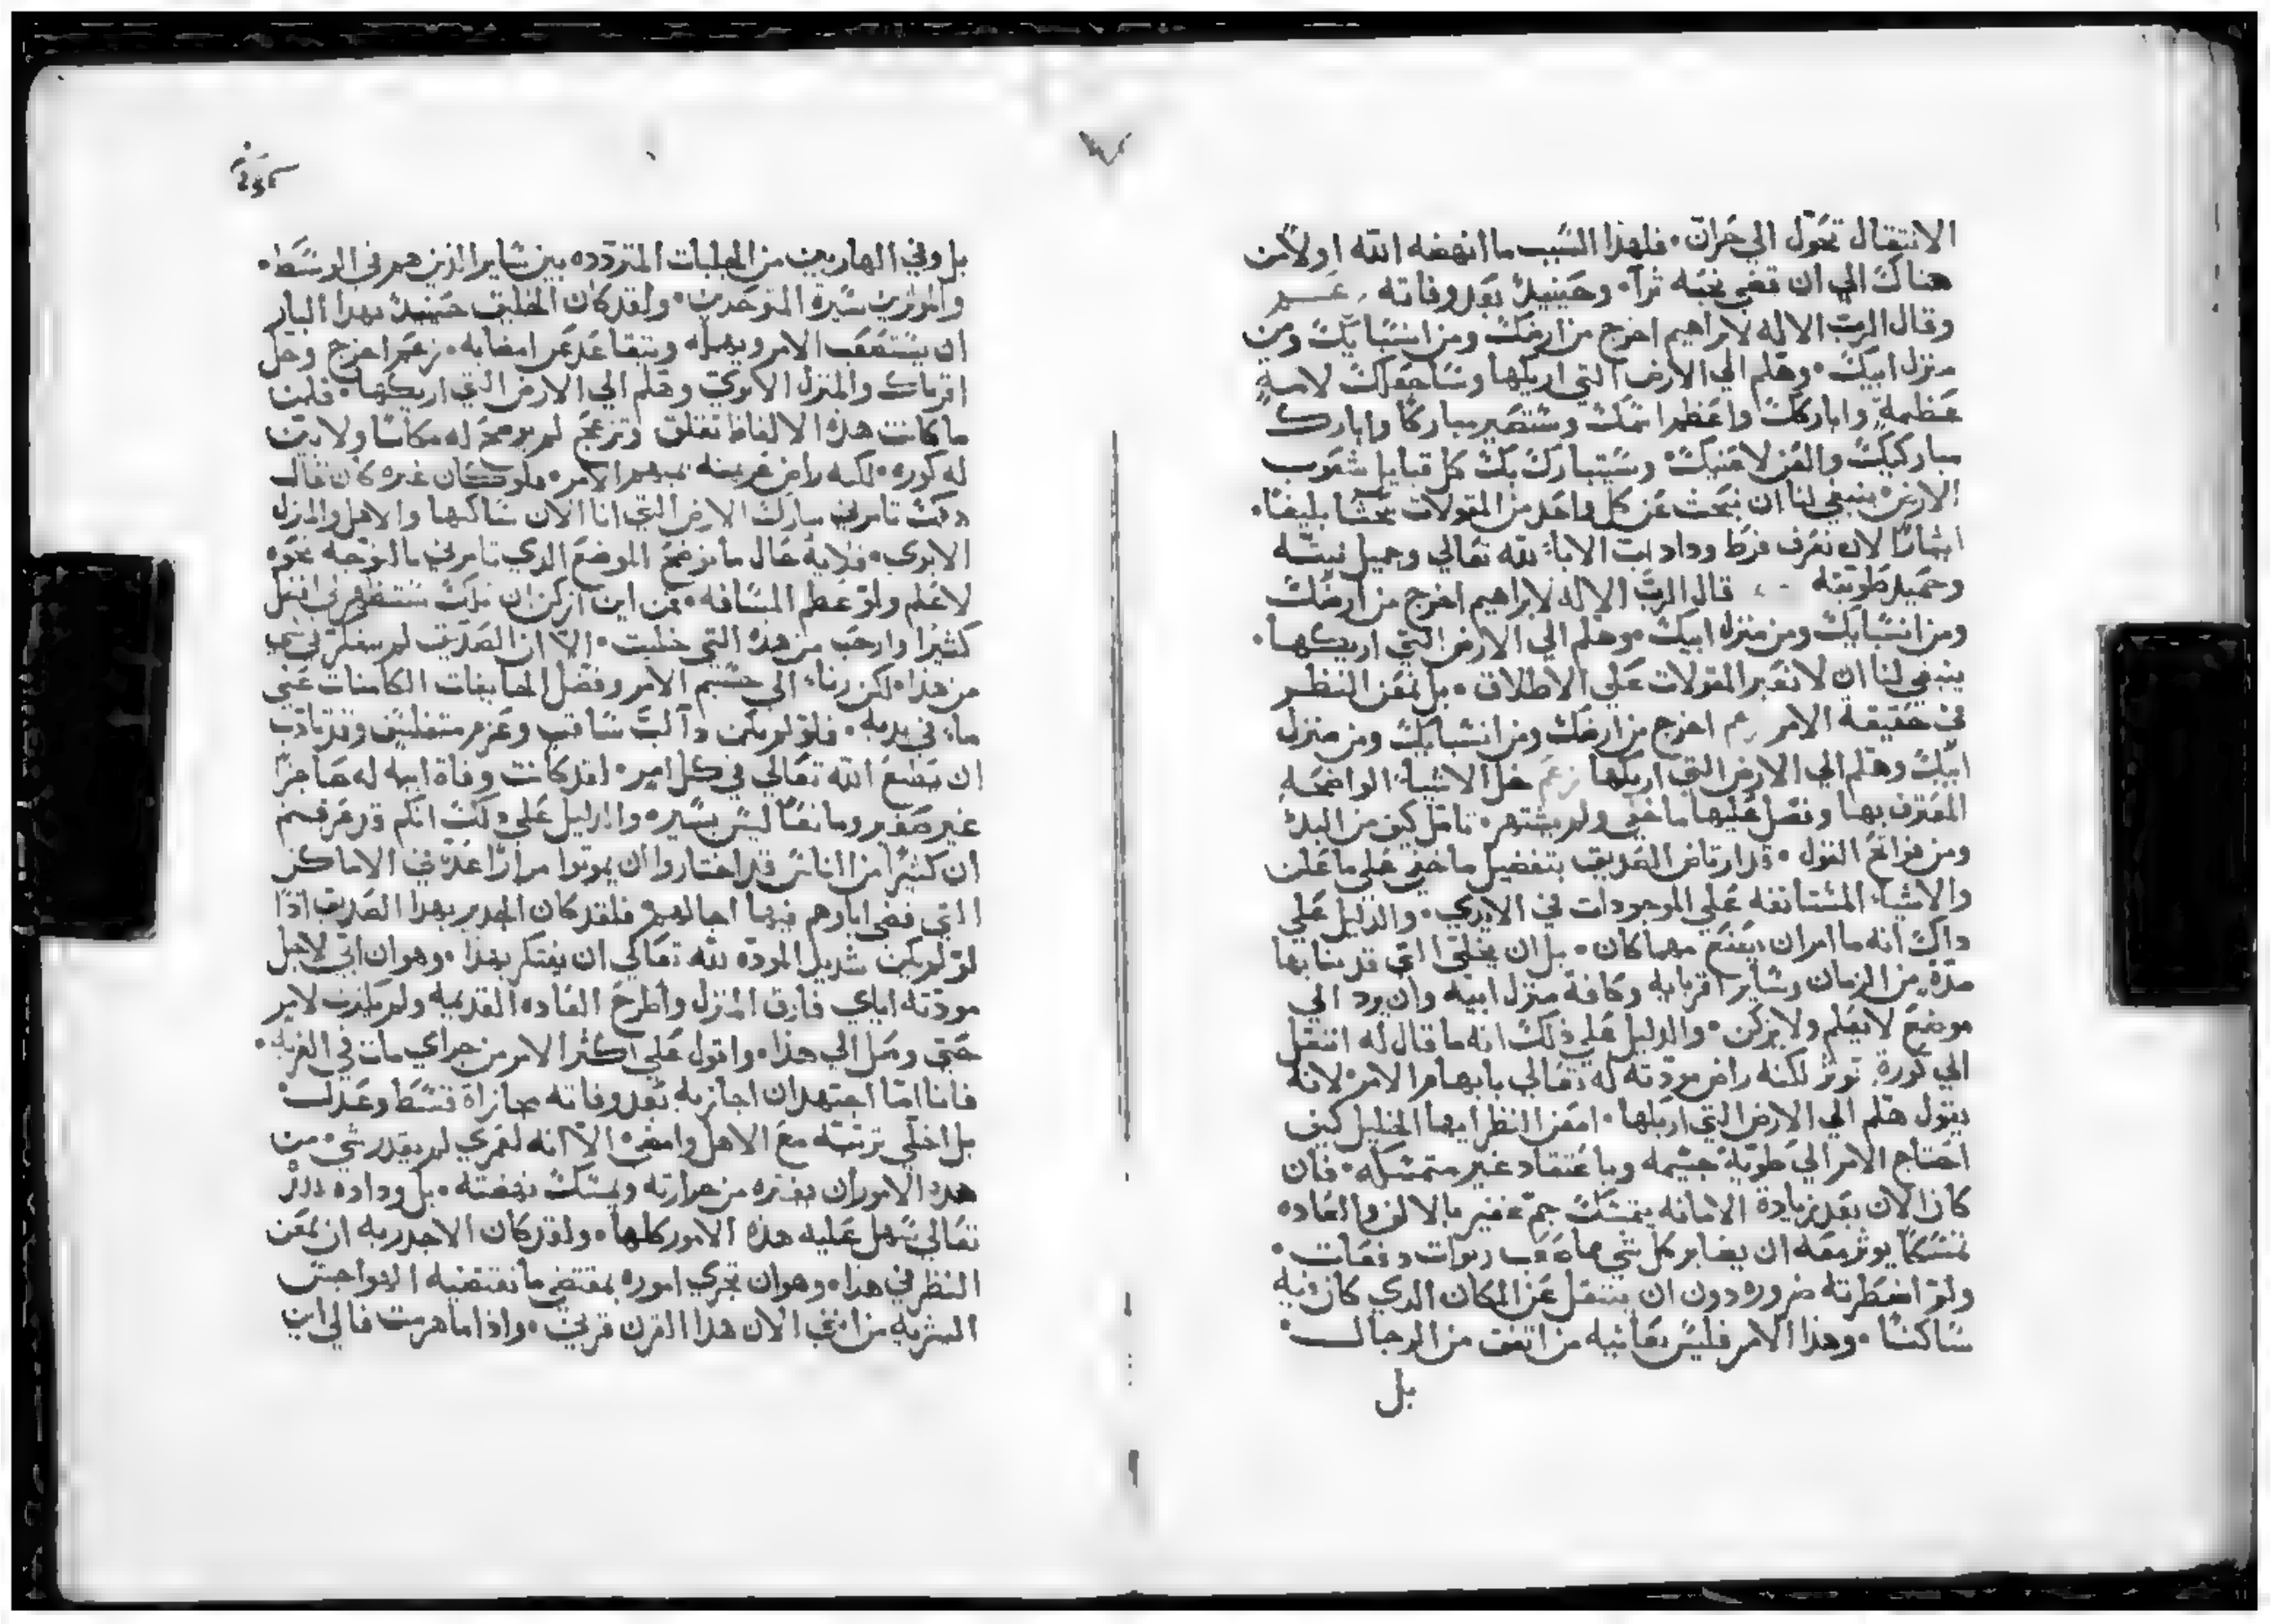 الانتقال تحول الي حران. فلهذا السبب ما انهضه الله اولا من
هناك الي ان قضي نحبه ترآ. وحينيذ بعد وفاته
وقال الرب الاله لابراهيم اخرج من ارضك ومن انسبايك ومن
منزل ابيك. وهلم الي الارض التي اريكها وساجعلك لامة
عظيمة واباركك واعظم اسمك وستصير مباركا وابارك
مباركيك والعن لاعنيك. وستبارك بك كل قبايل شعوب
الارض. ينبغي لنا ان نبحث عن كل واحد من المقولات بحثا بليغا.
لان نعرف فرط ودادات الابآ لله تعالي وجميل نيته
وحميد طويته قال الرب الاله لابراهيم اخرج من ارضك
ومن انسبايك ومن منزل ابيك. وهلم الي الارض التي اريكها.
ينبغي لنا ان لا نعبر المقولات علي الاطلاق. بل نمعن النظر
في حقيقة الامر زعم اخرج من ارضك ومن انسبايك ومن منزل
ابيك وهلم الي الارض التي اريكها زعم خل الاشيآ الواضحه
المعترف بها وفضل عليها ما خفي ولم يشتهر. تامل كيف من البدؤ
ومن فواتح القول. قد ارتاض الصديق بتفضيل ما خفي علي ما علن
والاشيآ المستانفه علي الموجودات في الايدي. والدليل علي
ذاك انه ما امر ان يصنع مهما كان. بل ان يخلي التي قد
مدة من الزمان وساير اقربايه وكافة منزل ابيه وان يرد الي
موضع لا يعلم ولا يزكن. والدليل علي ذلك انه ما قال له انتقل
الي كورة لكنه راض مودته له تعالي بابهام الامر لانه
يقول هلم الي الارض التي اريكها. امعن النظر ايها الخليل كيف
احتاج الامر الي طوية جسيمه وباعتقاد غير متمسكه. فان
كان الان بعد زيادة الامانه يتمسك جم غفير بالالف والعاده
تمسكا يوثر معه ان يصابر كل شي صعب ربوات دفعات.
ولو اضطرته ضروره دون ان ينتقل عن المكان الذي كان فيه
ساكنا. وهذا الامر فليس يعانيه من اتفق من الرجال.
بل
بل وفي الهاربين من الجلبات المتردده بين ساير الذين هم في الوسط.
والموثرين سيرة المتوحدين. ولقد كان الخليق حينيذ بهذا البار
ان يستصعب الامر ويهمله ويتقاعد عن امضايه. زعم اخرج وخل
اقرباك والمنزل الابوي وهلم الي الارض التي اريكها. فلمن
ما كانت هذه الالفاظ تقلق وتزعج لم يوضح له مكانا ولا بين
له كوره. لكنه راض الامر. فلو كان غيره كان قال
تامرني ببارك الارض التي انا الان ساكنها والاهل والمنزل
الابوي. فلاية حال ما توضح الموضع الذي تامرني بالتوجه نحوه
لاعلم ولو عظم المسافه. فمن اين ازكن ان تلك ستظهر لي افضل
كثيرا وارحب من هذه التي خليت. الا ان الصديق لم يفتكر في شي
من هذا. لكن رنا الي جسيم الامر وفضل الكامنات علي
ما في يديه. فلو لم يكن ذا لب ثاقب وعزم متفلسف وقد تادب
ان يطيع الله تعالي في كل امر. لقد كانت وفاة ابيه له حاجزا
غير صغير ومانعا ليس يسير. والدليل علي ذلك انكم قد عرفتم
ان كثيرا من الناس قد اختاروا ان يموتوا مرارا عدة في الاماكن
التي قضي اباوهم فيها اجالهم. فلقد كان الجدير بهذا الصديق اذا
لو لم يكن شديد المودة لله تعالي ان يفتكر بهذا. وهو ان ابي لاجل
مودته اياي فارق المنزل واطرح العاده القديمه
حتي وصل الي هذا. واقول علي اكثر الامر من جراي مات في الغربه.
فانا ما اجتهد ان اجازيه بعد وفاته مجازاة قسط وعدل.
بل اخلي تربته مع الاهل وامضي. الا انه لعمري لم يقدر شي من
هذه الامور ان يفتره من حرارته ويمسك نهضته. بل وداده لله
تعالي سهل عليه هذه الامور كلها. ولقد كان الاجدر به ان يمعن
النظر في هذا. وهو ان تجري اموره بمقتضي ما تقتضيه الهواجس
البشريه الان هذا القرن قربي. واذا ما هرمت فالي اين